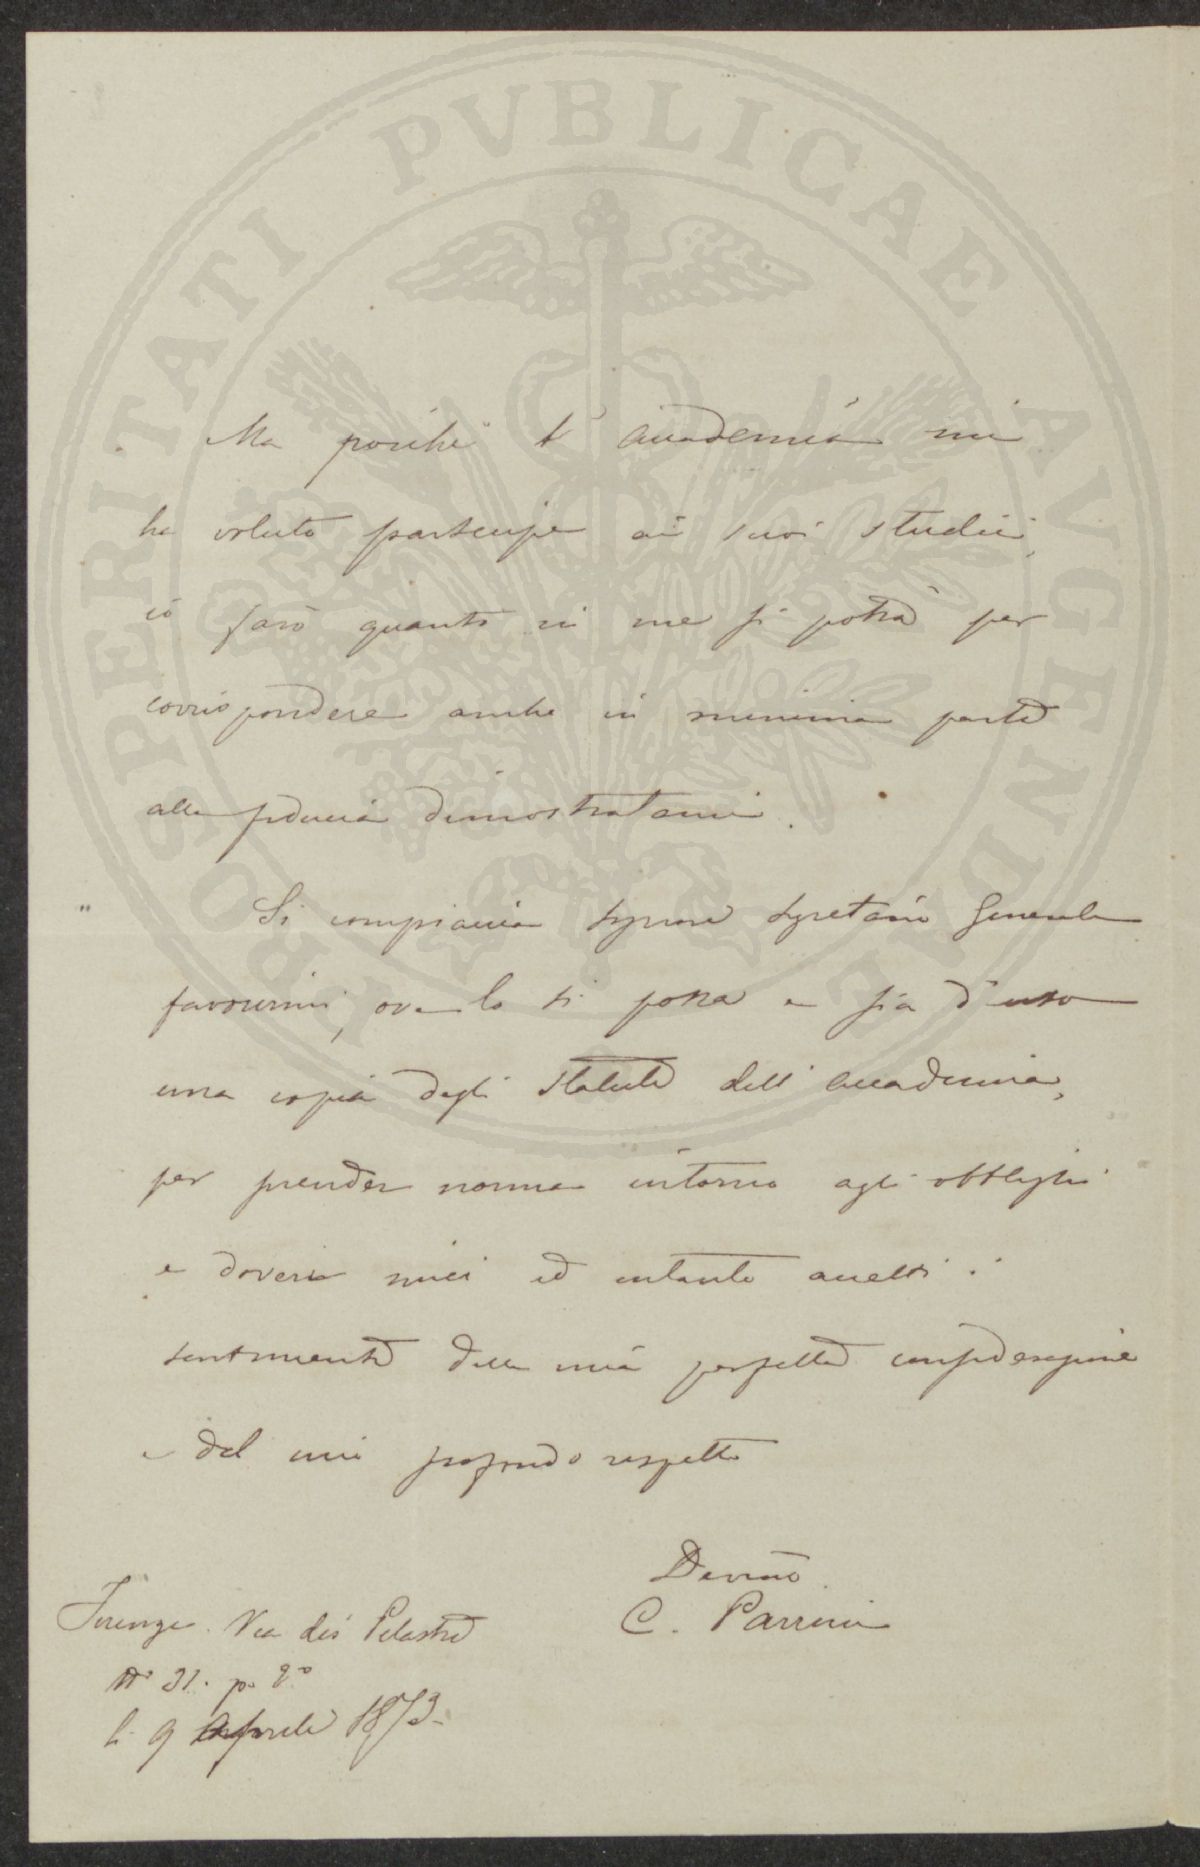 PROSPERITATI PVBLICAE AVGENDAE
Ma poiché l' accademia mi
ha voluto partecipe ai suoi studii,
io farò quanto in me si potrà per
corrispondere anche in minima parte
alla fiducia dimostratami.
Si compiaccia Signore Segretario Generale
favorirmi, ove lo si possa e sia d'uso
una copia degli Statuti dell' accademia,
per prender norma intorno agli obblighi
e doveri miei ed intanto accetti i
sentimenti della mia perfetta considerazione
e del mio profondo rispetto
Devmo
C. Parrini
Firenze. Via dei Pilastri
No 31. po 2o
li 9 Aprile 1873.